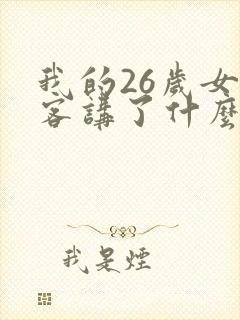 我的26歲女
客講了什麼
我是煙